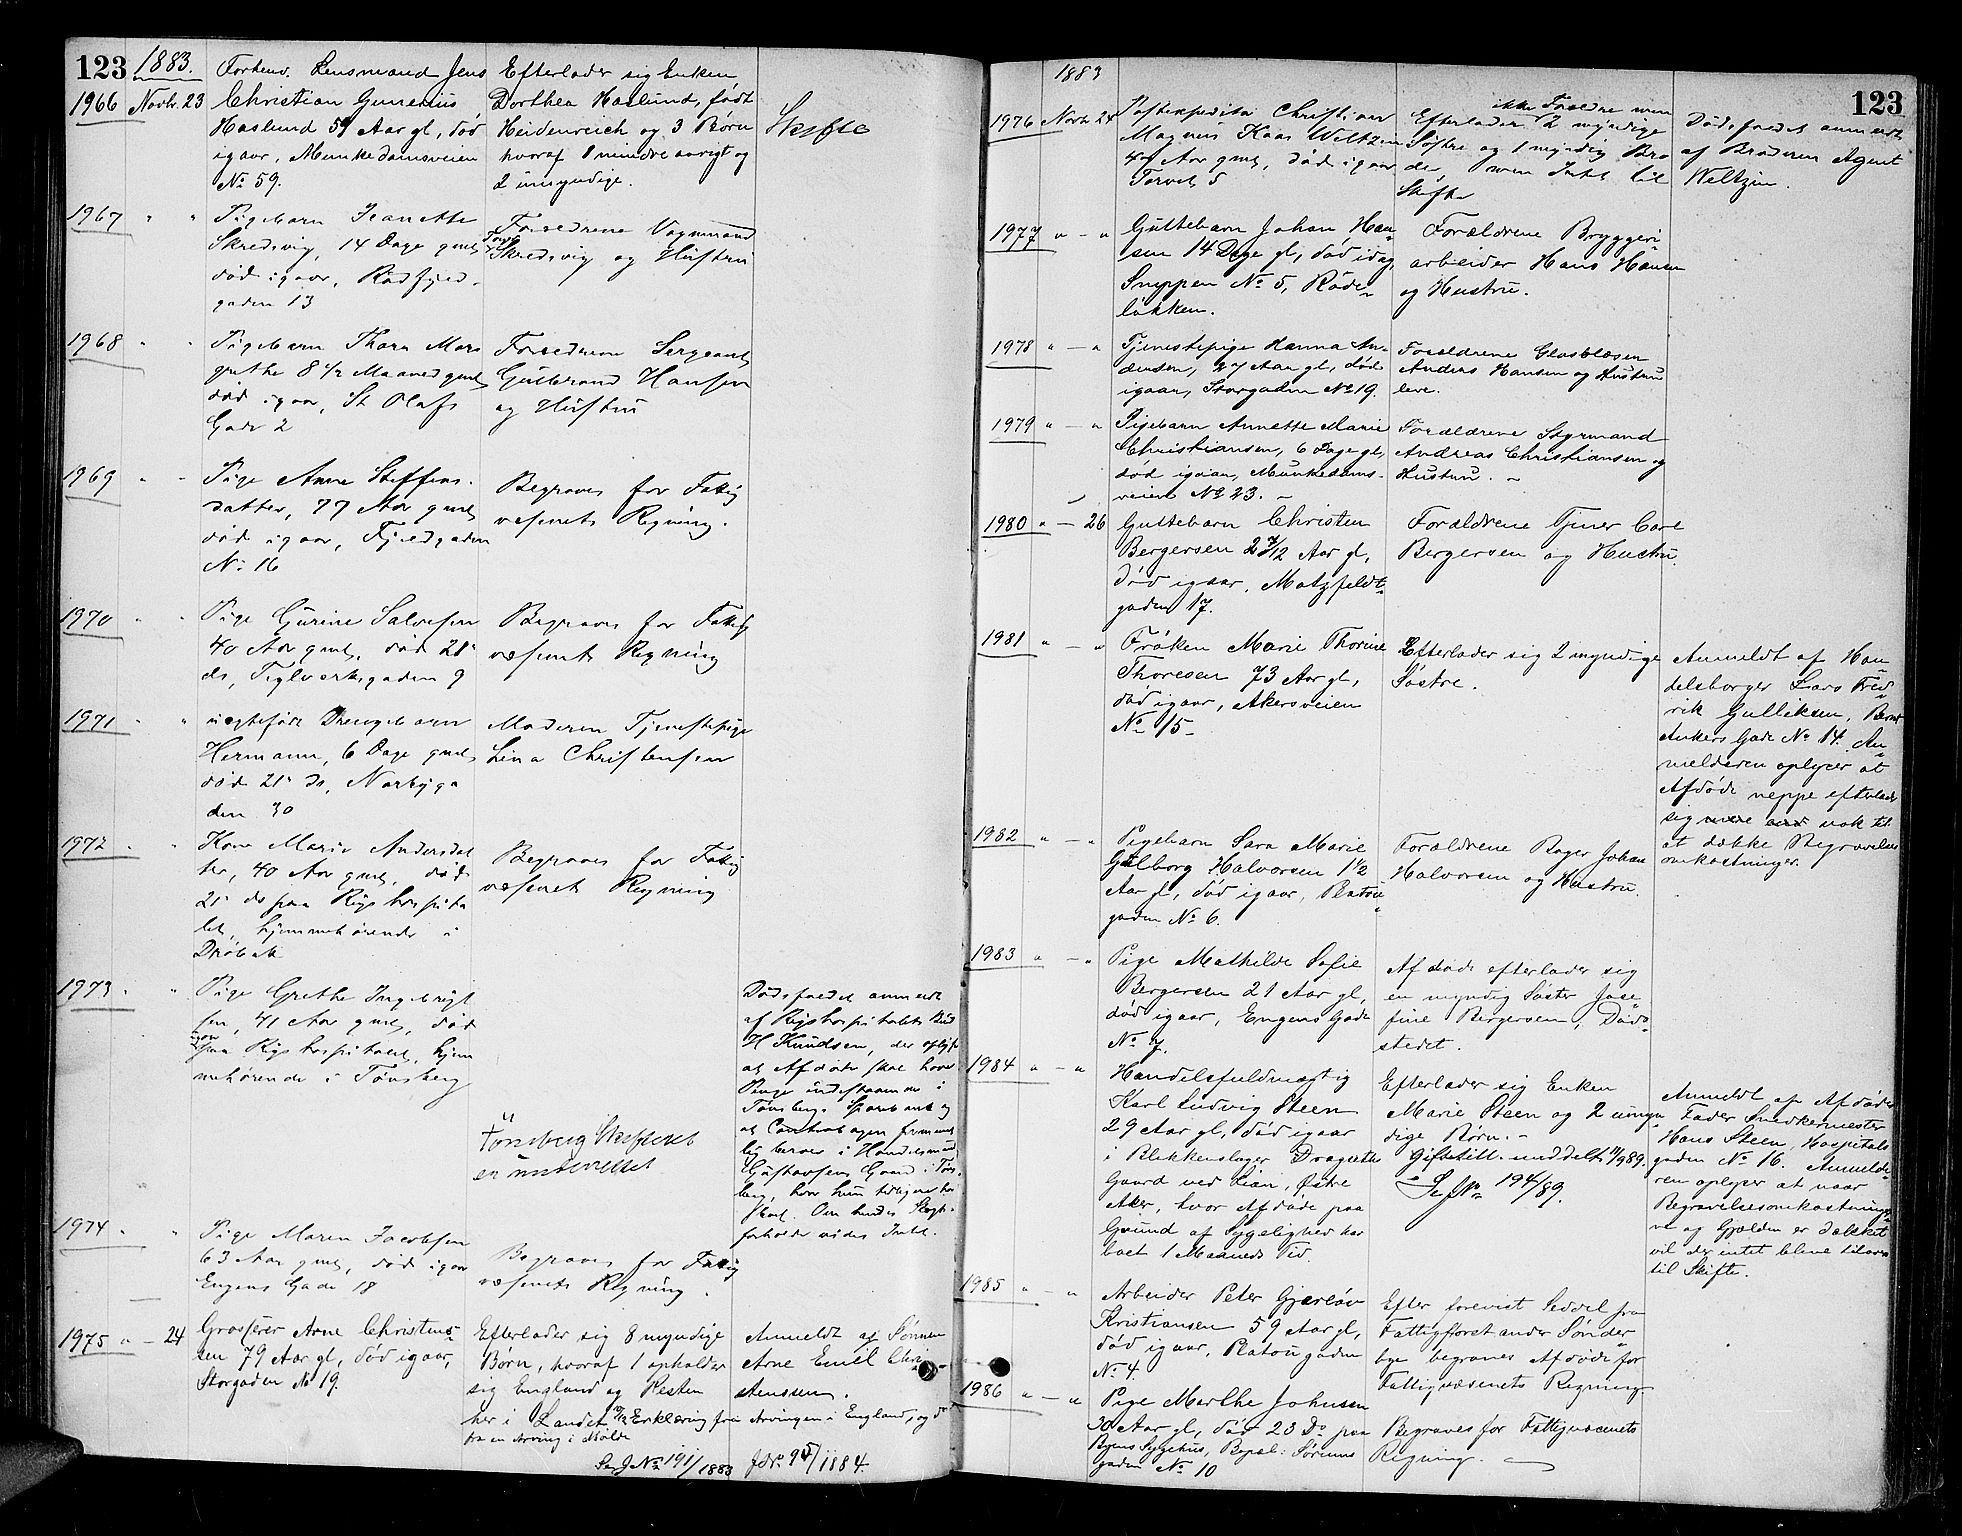 123
1883.
1966 Novbr. 23
Forhenv. Lensmand Jens
Christian Gunerius
Haslund 59 Aar gl, død
igaar, Munkedamsveien
No 59.
Efterlader sig Enken
Dorthea Haslund, født
Heidenreich og 3 Børn
hvoraf 1 mindreaarigt og
2 umyndige.
Skifte
1967 " "
Pigebarn Jeanette
Skredsvig, 14 Dage gml,
død igaar, Rødfyld-
gaden 13
Forældrene Vognmand
Skredsvig og Hustru
1968 " "
Pigebarn Thora Mar
grethe 8 1/2 Maaned gml,
død igaar, St Olafs
Gade 2
Forældrene Sergeant
Gulbrand Hansen
og Hustru
1969 " "
Pige Anne Steffens-
datter, 77 Aar gml,
død igaar, Fjeldgaden
No 16
Begraves for Fattig
væsenets Regning.
1970 " "
Pige Gurine Salvesen
40 Aar gml, død 21'
ds, Teglverksgaden 9
Begraves for Fattig
væsenets Regning
1971 " "
uægtefødt Drengebarn
Hermann, 6 Dage gml,
død 21' ds, Norbyga
den 30
Moderen Tjenestepige
Lina Christensen
1972 " "
Kone Marie Andersdat
ter, 40 Aar gml, død
21' ds paa Rigshospita
let, hjemmehørende i
Drøbak
Begraves for Fattig
væsenets Regning
1973 " "
Pige Grethe Ingebrigt
sen, 41 Aar gml, død
igaar
paa Rigshospitalet, hjem
mehørende i Tønsberg
Tønsberg Skifteret
er underrettet
Dødsfaldet anmeldt
af Rigshospitalets Bud
H Knudsen, der oplyser
at Afdøde skal have
Penge indestaaende i
Tønsberg Sparebank og
at Contrabogen formenent
lig beroer i Handelsmand
Gustavsens Gaard i Tøns
berg, hvor hun tidligere har
Om hendes Slægt-
forholde vides Intet.
1974 " "
Pige Maren Jacobsen
63 Aar gml, død igaar
Eugens Gade 18
Begraves for Fattig
væsenets Regning.
1975 " — 24
Grosserer Arne Christens-
sen 79 Aar gl, død igaar,
Storgaden No 19.
Efterlader sig 8 myndige
Børn, hvoraf 1 opholder
sig England og Resten
her i Landet Erklæring fra
fra en Arving i Molde
Anmeldt af Sønnen
Arne Emil Chri
stenssen.
Arvingen i England, og d
Se J No 191/1883 JNr. 95/1884.
123
1883
1976 Novbr 24
Postexpeditør Christian
Magnus Kaas Weltzin
Aar gml, død igaar
Torvet 5
ikke Forældre men
Efterlader 2 myndige
Søstre og 1 myndig Bro
der, men Intet til
Skifte
Dødsfaldet anmeldt
af Broderen Agent
Weltzin.
1977 " — "
Guttebarn Johan Han-
sen 14 Dage gl, død idag,
Snippen No 5, Røde-
løkken.
Forældrene Bryggeri-
arbeider Hans Hansen
og Hustru.
1978 " — "
Tjenestepige Hanna An-
densen, 27 Aar gl, død
igaar, Storgaden No 19.
Forældrene Glasblæser
Anders Hansen og Hustru
leve.
1979 " — "
Pigebarn Annette Marie
Christiansen, 6 Dage gl,
død igaar, Munkedams-
veien No 23. –
Forældrene Styrmand
Andreas Christiansen og
Hustru. –
1980 " — 26
Guttebarn Christen
Bergersen 2 7/12 Aar gl,
død igaar, Motzfeldt-
gaden 17.
Forældrene Tjener Carl
Bergersen og Hustru.
1981 " — "
Frøken Marie Thorine
Thoresen 73 Aar gl,
død igaar, Akersveien
No 15–
Efterlader sig 2 myndige
Søstre.
Anmeldt af Han-
delsborger Lars Fred-
rik Gulliksen, Bernt
Ankers Gade No 14. An-
melderen oplyser at
Afdøde neppe efterlader
sig mere end nok til
at dække Begravelses
omkostninger.
1982 " — "
Pigebarn Sara Marie
Gulborg Halvorsen 1 1/2
Aar gl, død igaar, Platou
gaden No 6.
Forældrene Bager Johan
Halvorsen og Hustru.
1983 " — "
Pige Mathilde Sofie
Bergersen 21 Aar gl,
død igaar, Eugens Gade
No 7.
Afdøde efterlader sig
en myndig Søster Jose
fine Bergersen, Døds-
stedet.
1984 " — "
Handelsfuldmægtig
Karl Ludvig Steen
29 Aar gl, død igaar
i Blikkenslager Dragseths
Gaard ved Lian, Østre
Aker, hvor Afdøde paa
Grund af Sygelighed har
boet 1 Maaneds Tid.
Efterlader sig Enken
Marie Steen og 2 umyn
dige Børn. –
Giftetill. meddelt 11/9 89.
Se J No 194/89.
Anmeldt af Afdødes
Fader Snedkermester
Hans Steen, Hospitals
gaden No 16. Anmelde-
ren oplyser at naar
Begravelsesomkostninger
ne og Gjælden er dækket
vil der intet blive tilovers
til Skifte.
1985 " — "
Arbeider Peter Gjerløv
Kristiansen 59 Aar gl,
død igaar, Platougaden
No 4.
Efter forevist Seddel fra
Fattigforstander Sønder-
bye begraves Afdøde for
Fattigvæsenets Regning
1986 " — "
Pige Marthe Johnsen
30 Aar gl, død 23 Do paa
Byens Sygehus, Bopæl: Sørums
gaden No 10
Begraves for Fattigvæsenets
Regning.